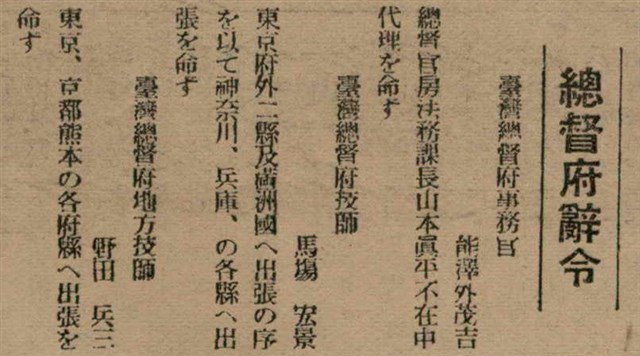 總督府辭令
臺灣總督府事務官
能澤外茂吉
總督官房法務課長山本眞平不在中
代理を命ず
臺灣總督府技師
馬場 宏景
東京府外二縣及滿洲國へ出張の序
を以て神奈川、兵庫、の各縣へ出
張を命ず
臺灣總督府地方技師
野田 兵三
東京、京都熊本の各府縣へ出張を
命ず